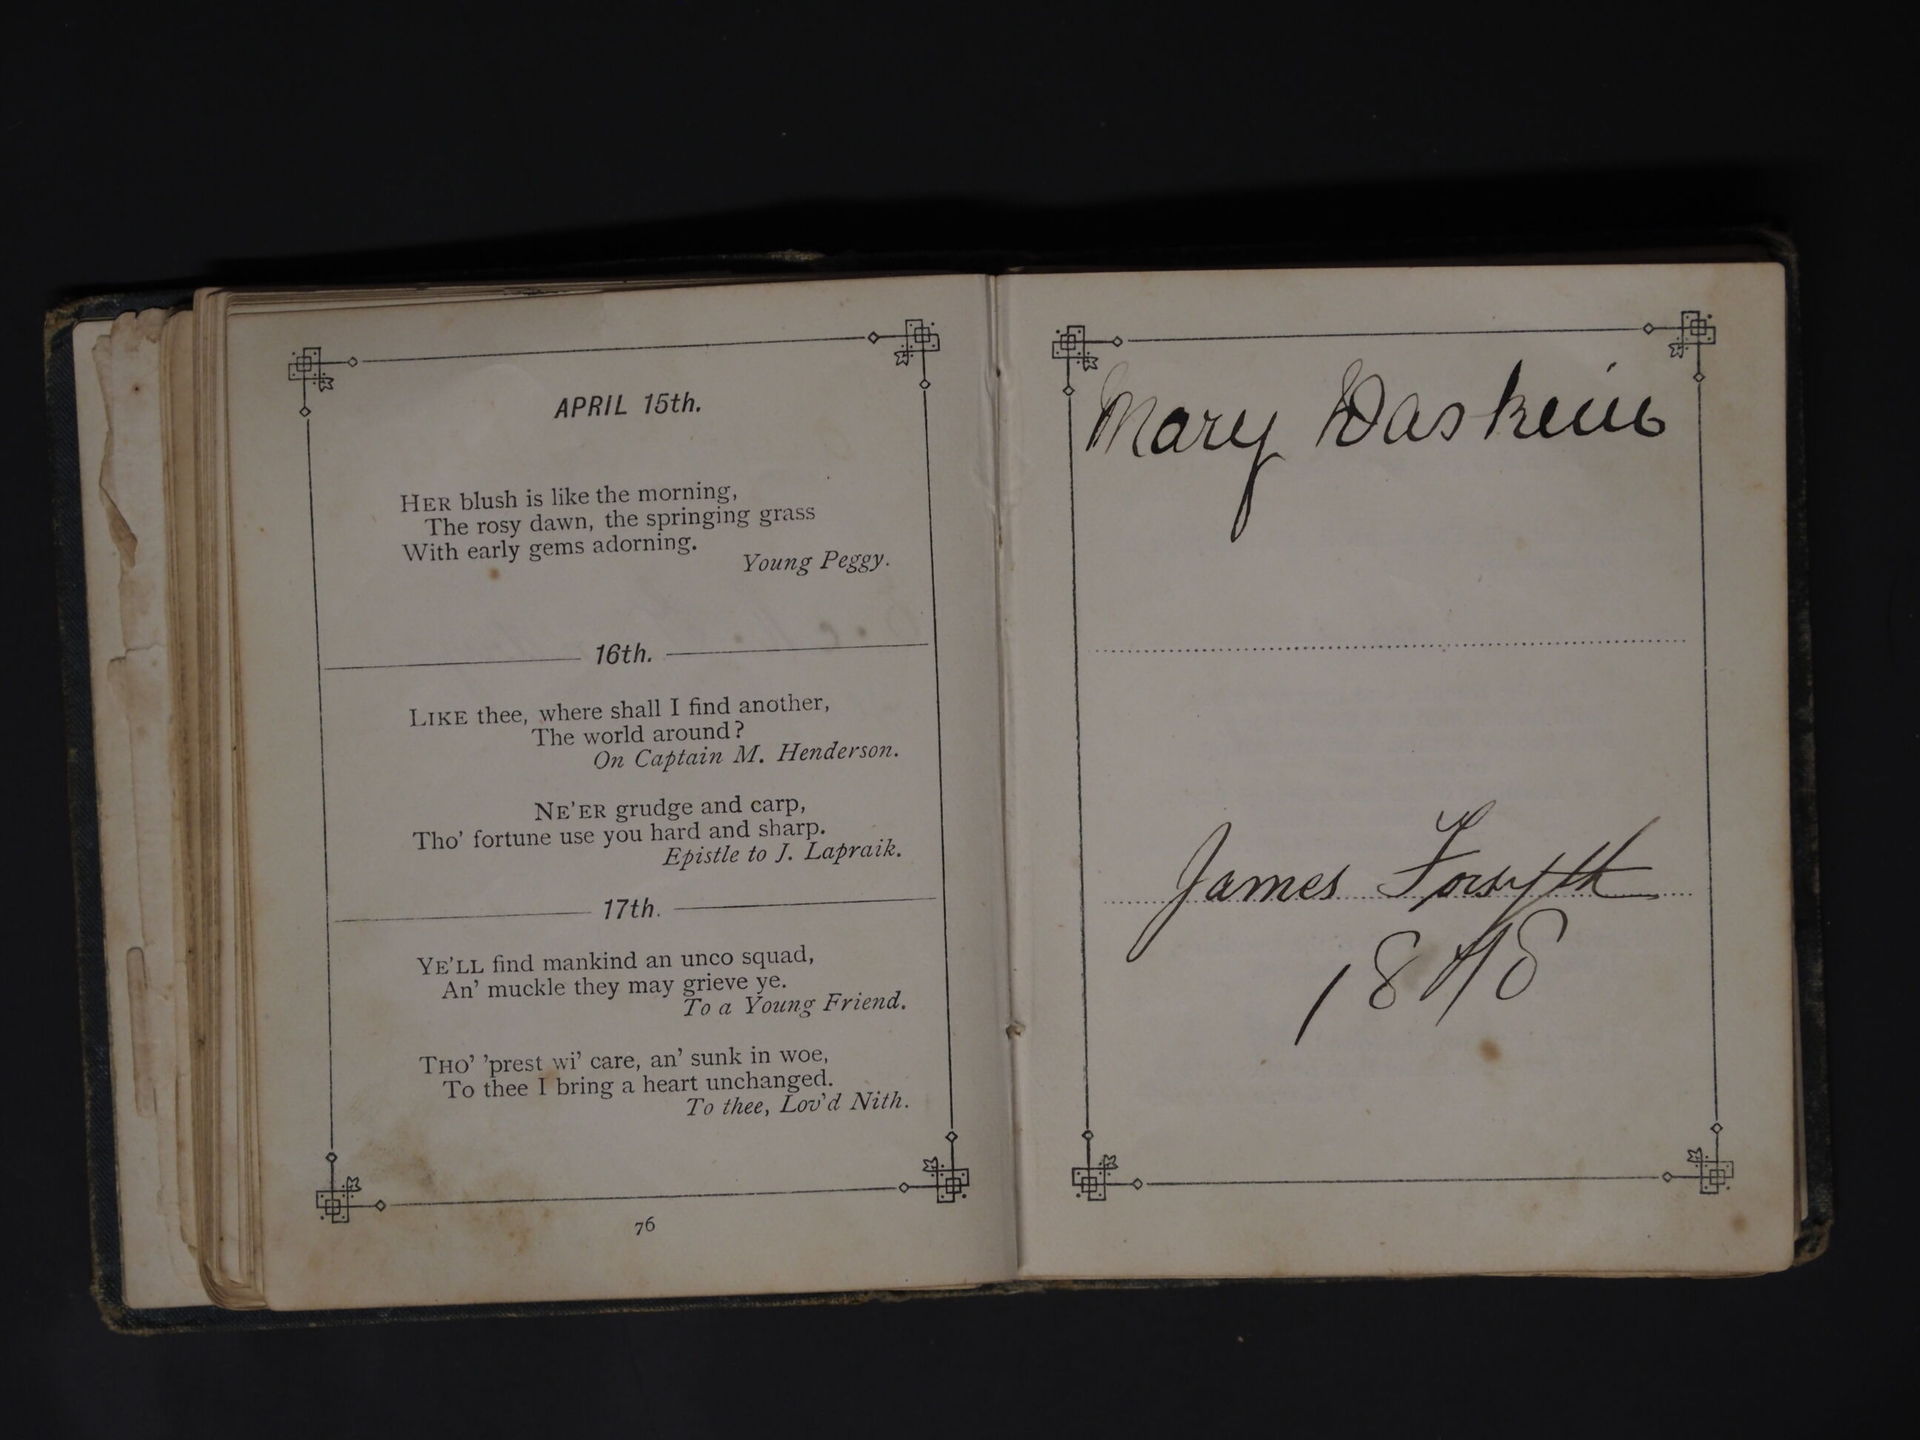 APRIL 15th.
HER blush is like the morning,
The rosy dawn, the springing grass
With early gems adorning.
Young Peggy.
16th.
LIKE thee, where shall I find another,
The world around?
On Captain M. Henderson.
NE'ER grudge and carp,
Tho' fortune use you hard and sharp.
Epistle to J. Lapraik.
17th.
YE'LL find mankind an unco squad,
An' muckle they may grieve ye.
To a Young Friend.
THO' 'prest wi' care, an' sunk in woe,
To thee I bring a heart unchanged.
To thee, Lov'd Nith.
76
Mary
James Forsyth
18